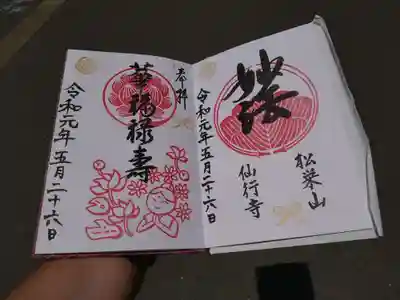 松栄山
妙法
仙行寺
令和元年五月二十六日
奉拝
華福禄寿
令和元年五月二十六日